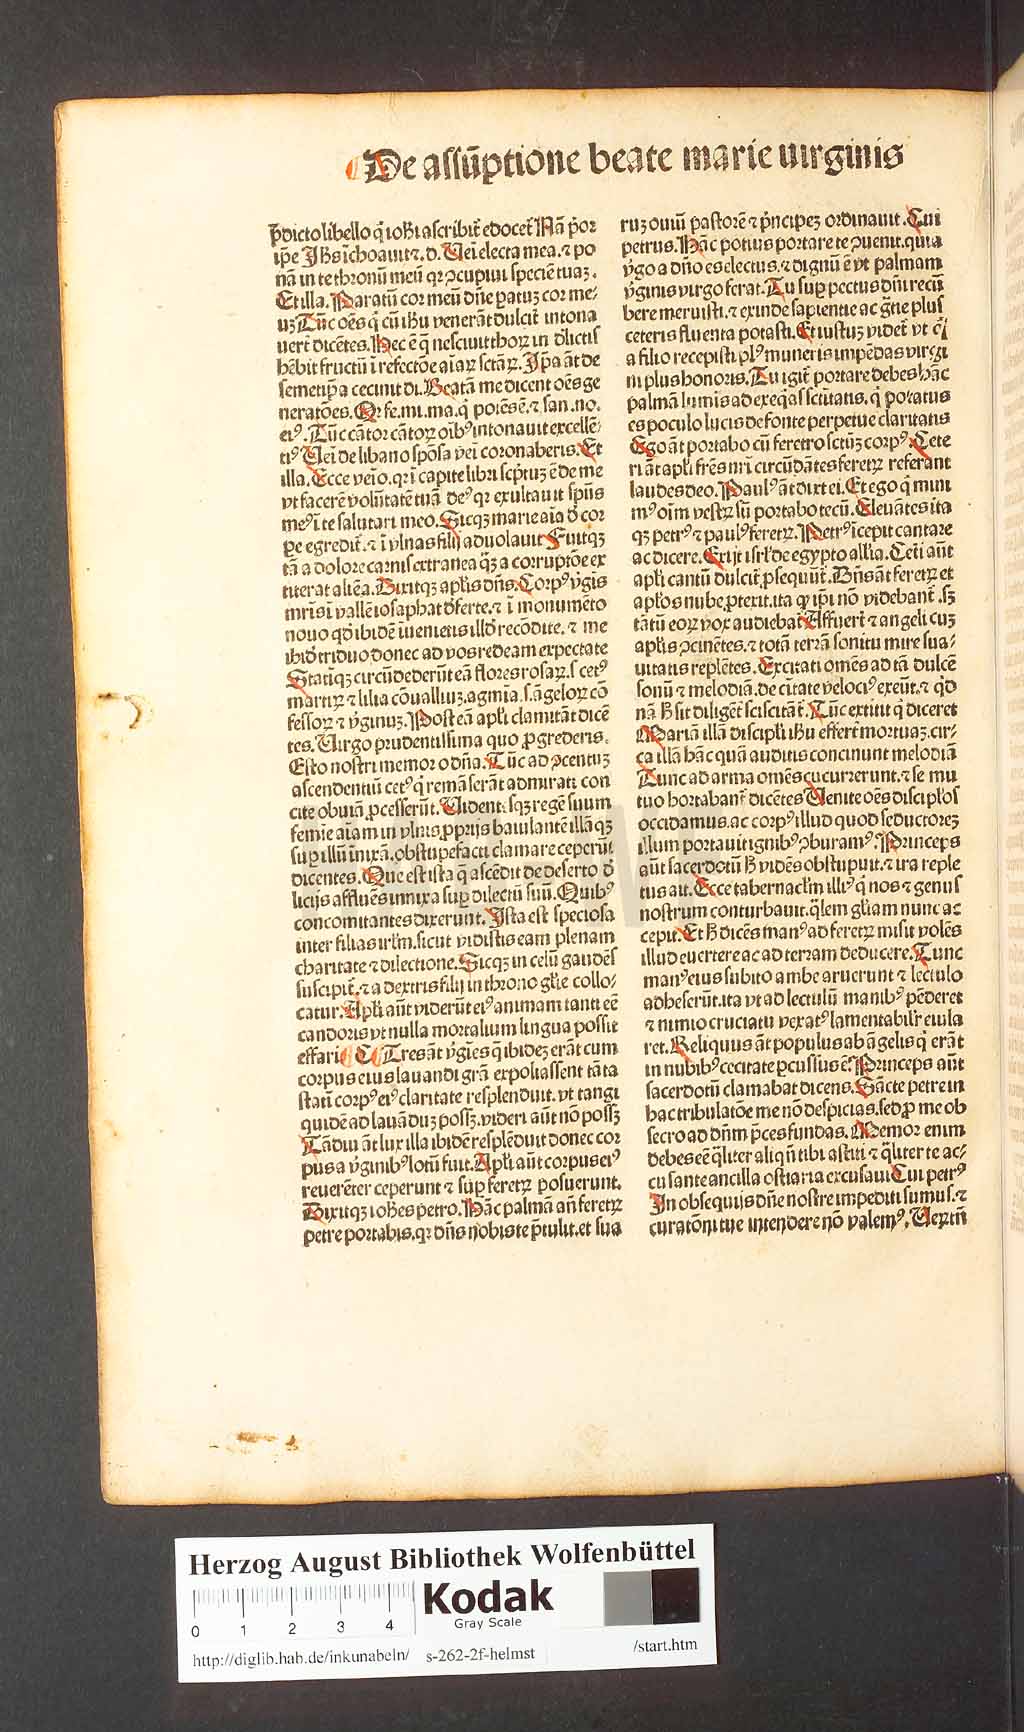 De assūptione beate marie uirginis
p̄dicto libello q̄ ioh̄i ascribit̄ edocet̄ Nā p̄or
ip̄e Jh̄s īchoauit ⁊. d. Uei electa mea. ⁊ po
nā in te thronū meū qꝛ ↄcupiui speciē tuaꝫ.
Et illa. Paratū cor meū dn̄e patuꝫ cor me-
uꝫ Tūc oēs q̄ cū ih̄u venerāt dulcit̄ intona
uert̄ dicētes. Hec ē q̄ nesciuit thoꝝ in d̄lictis
hēbit fructū ī refectōe aīaꝝ sctāꝝ. Jp̄a āt de
semetip̄a cecinit di. Beatā me dicent oēs ge
neratōes. Qꝛ fe. mi. ma. q̄ potēs ē. ⁊ san. no.
eiꝰ. Tūc cātor cātoꝝ oībꝰ intonauit excellē-
tiꝰ Uei de libano spōsa vei coronaberis. Et
illa. Ecce veīo. qꝛ ī capite libri sc̄ptuꝫ ē de me
vt facerē volūtatē tuā deꝰ qꝛ exultauit sp̄ūs
meꝰ ī te salutari meo. Sicqꝫ marie aīa d̓ cor
ꝑe egredit̄. ⁊ ī vlnas filij aduolauit Fuitqꝫ
tā a dolore carnis extranea q̄ꝫ a corruptōe ex
titerat aliēa. Dixitqꝫ apl̄is dn̄s. Corpꝰ v̓gīs
mr̄is ī valle iosaphat d̓ferte. ⁊ ī monumēto
nouo qd̓ ibidē īuenietis illd̓ recōdite. ⁊ me
ibid̓ triduo donec ad vos redeam expectate
Statīqꝫ circūdederūt eā flores rosaꝝ. s cetꝰ
martiꝝ ⁊ lilia cōualliuꝫ. agmīa. s. āgeloꝝ cō
fessoꝝ ⁊ v̓ginuꝫ. Post eā apl̄i clamitāt dicē
tes. Uirgo prudentissima quo ꝓgrederis.
Esto nostri memor o dn̄a. Tūc ad ↄcentuꝫ
ascendentiū cetꝰ q̄ remāserāt admirati con
cite obuiā ꝓcesserūt. Uidentesqꝫ regē suum
femīe aīam in vlnis ꝓprijs baiulantē illāqꝫ
suꝑ illū īnixā. obstupefacti clamare ceperūt
dicentes. Que est ista q̄ ascēdit de deserto d̓
licijs affluēs innixa suꝑ dilectū suū. Quibꝰ
concomitantes dixerunt. Jsta est speciosa
inter filias ir̄lm. sicut vidistis eam plenam
charitate ⁊ dilectione. Sicqꝫ in celū gaudēs
suscipit̄. ⁊ a dextris filij in throno gl̄ie collo-
catur. Apl̄i aūt viderūt eiꝰ animam tanti eē
candoris vt nulla mortalium lingua possit
effari Tres āt v̓gīes q̄ ibideꝫ erāt cum
corpus eius lauandi grā expoliassent tāta
statī corpꝰ eiꝰ claritate resplenduit. vt tangi
quidē ad lauāduꝫ possꝫ. videri aūt nō possꝫ
Tādiu āt lux illa ibidē resplēduit donec cor
pus a v̓ginibꝰ lotū fuit. Apl̄i aūt corpus eiꝰ
reuerēter ceperunt ⁊ suꝑ feretꝝ posuerunt.
Dixitqꝫ ioh̄es petro. Hāc palmā an̄ feretꝝ
petre portabis. qꝛ dn̄s nobis te p̄tulit. et sua
ruꝫ ouiū pastorē ⁊ p̄ncipeꝫ ordinauit. Cui
petrus. Hāc potius portare te ↄuenit. quia
v̓go a dn̄o es electus. ⁊ dignū ē vt palmam
v̓ginis virgo ferat. Tu suꝑ pectus dn̄i recū
bere meruisti. ⁊ exinde sapientie ac gr̄e plus
ceteris fluenta potasti. Et iustuꝫ videt̄ vt q̄
a filio recepisti plꝰ muneris impēdas virgi
ni plus honoris. Tu igit̄ portare debes hāc
palmā lumīs ad exeq̄as sctītatis. q̄ potatus
es poculo lucis de fonte perpetue claritatis
Ego āt portabo cū feretro sctūꝫ corpꝰ. Cete
ri āt apl̄i fr̄es nr̄i circūdātes feretꝝ referant
laudes deo. Paulꝰ āt dixit ei. Et ego q̄ mini
mꝰ oīm vestꝝ sū portabo tecū. Eleuātes ita
qꝫ petrꝰ ⁊ paulꝰ feretꝝ. Petrꝰ īcepit cantare
ac dicere. Exijt isrl̄ de egypto all̄ia. Ceti aūt
apl̄i cantū dulcit̄ ꝓsequūt̄. Dn̄s āt feretꝝ et
apl̄os nube ꝓtexit. ita qꝙ ip̄i nō videbant̄. sꝫ
tātū eoꝝ vox audiebat̄ Affuert̄ ⁊ angeli cuꝫ
apl̄is ↄcinētes. ⁊ totā terrā sonitu mire sua-
uitatis replētes. Excitati omēs ad tā dulcē
sonū ⁊ melodiā. de cītate velociꝰ exeūt. ⁊ qd̓
nā h̄ sit diligēt̄ sciscitāt̄. Tūc extitit q̄ diceret
Mariā illā discipl̄i ih̄u effert̄ mortuaꝫ. cir-
ca illā hāc quā auditis concinunt melodiā
Tunc ad arma omēs cucurrerunt. ⁊ se mu
tuo hortabant̄ dicētes Uenite oēs discipl̄os
occidamus. ac corpꝰ illud quod seductoreꝫ
illum portauit ignibꝰ ↄburamꝰ. Princeps
aūt sacerdotū h̄ vidēs obstupuit. ⁊ ira reple
tus ait. Ecce tabernacl̄m illiꝰ q̄ nos ⁊ genus
nostrum conturbauit. q̄lem gl̄iam nunc ac
cepit. Et h̄ dicēs manꝰ ad feretꝝ misit volēs
illud euertere ac ad terram deducere. Tunc
manꝰ eius subito ambe aruerunt ⁊ lectulo
adheserūt. ita vt ad lectulū manibꝰ pēderet
⁊ nimio cruciatu vexatꝰ lamentabilr̄ eiula
ret. Reliquus āt populus ab āgelis q̄ erāt
in nubibꝰ cecitate ꝑcussus ē. Princeps aūt
sacerdotū clamabat dicens. Sācte petre in
hac tribulatōe me nō despicias. sed ꝓ me ob
secro ad dn̄m p̄ces fundas. Memor enim
debes eē q̄liter aliqn̄ tibi astiti ⁊ q̄liter te ac-
cusante ancilla ostiaria excusaui Cui petrꝰ
Jn obsequijs dn̄e nostre impediti sumus. ⁊
curatōni tue intendere nō valemꝰ. Uerūtn̄
Herzog August Bibliothek Wolfenbüttel
0 1 2 3 4
Kodak
Gray Scale
http://diglib.hab.de/inkunabeln/ s-262-2f-helmst /start.htm